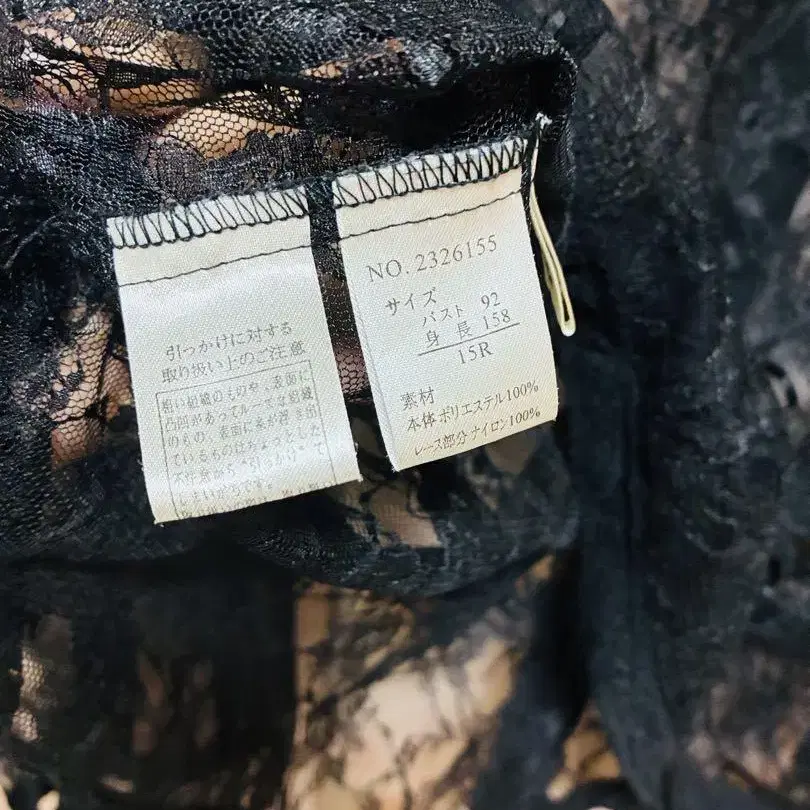 引っかけに対する
取り扱い上のご注意
粗い組織のものや、表面に
凸凹があってルーズな組織
のもの、表面に糸が浮き出
ているものはちょっとした
不注意から"引っかけ"て
しまいがちです。
NO. 2326155
サイズ
バスト 92
身長 158
15R
素材
本体 ポリエステル100%
レース部分 ナイロン100%